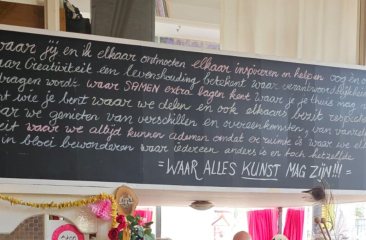 waar jij en ik elkaar ontmoeten elkaar inspireren en helpen oog en
waar Creativiteit een levenshouding betekent waar verantwoordelijkhei
dragen wordt waar SAMEN extra lagen kent waar je je thuis mag
wie je bent waar we delen en ook elkaars bezit respec
waar we genieten van verschillen en overeenkomsten, van
eit waar we altijd kunnen ademen omdat er ruimte is waar we el
in bloei bewonderen waar iedereen anders is en toch hetzelfde
= WAAR ALLES KUNST MAG ZIJN!!! =